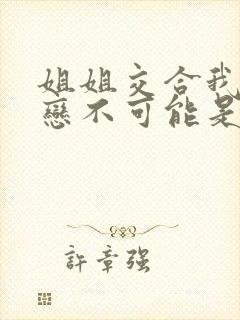 姐姐交合我
戀不可能是
許章強